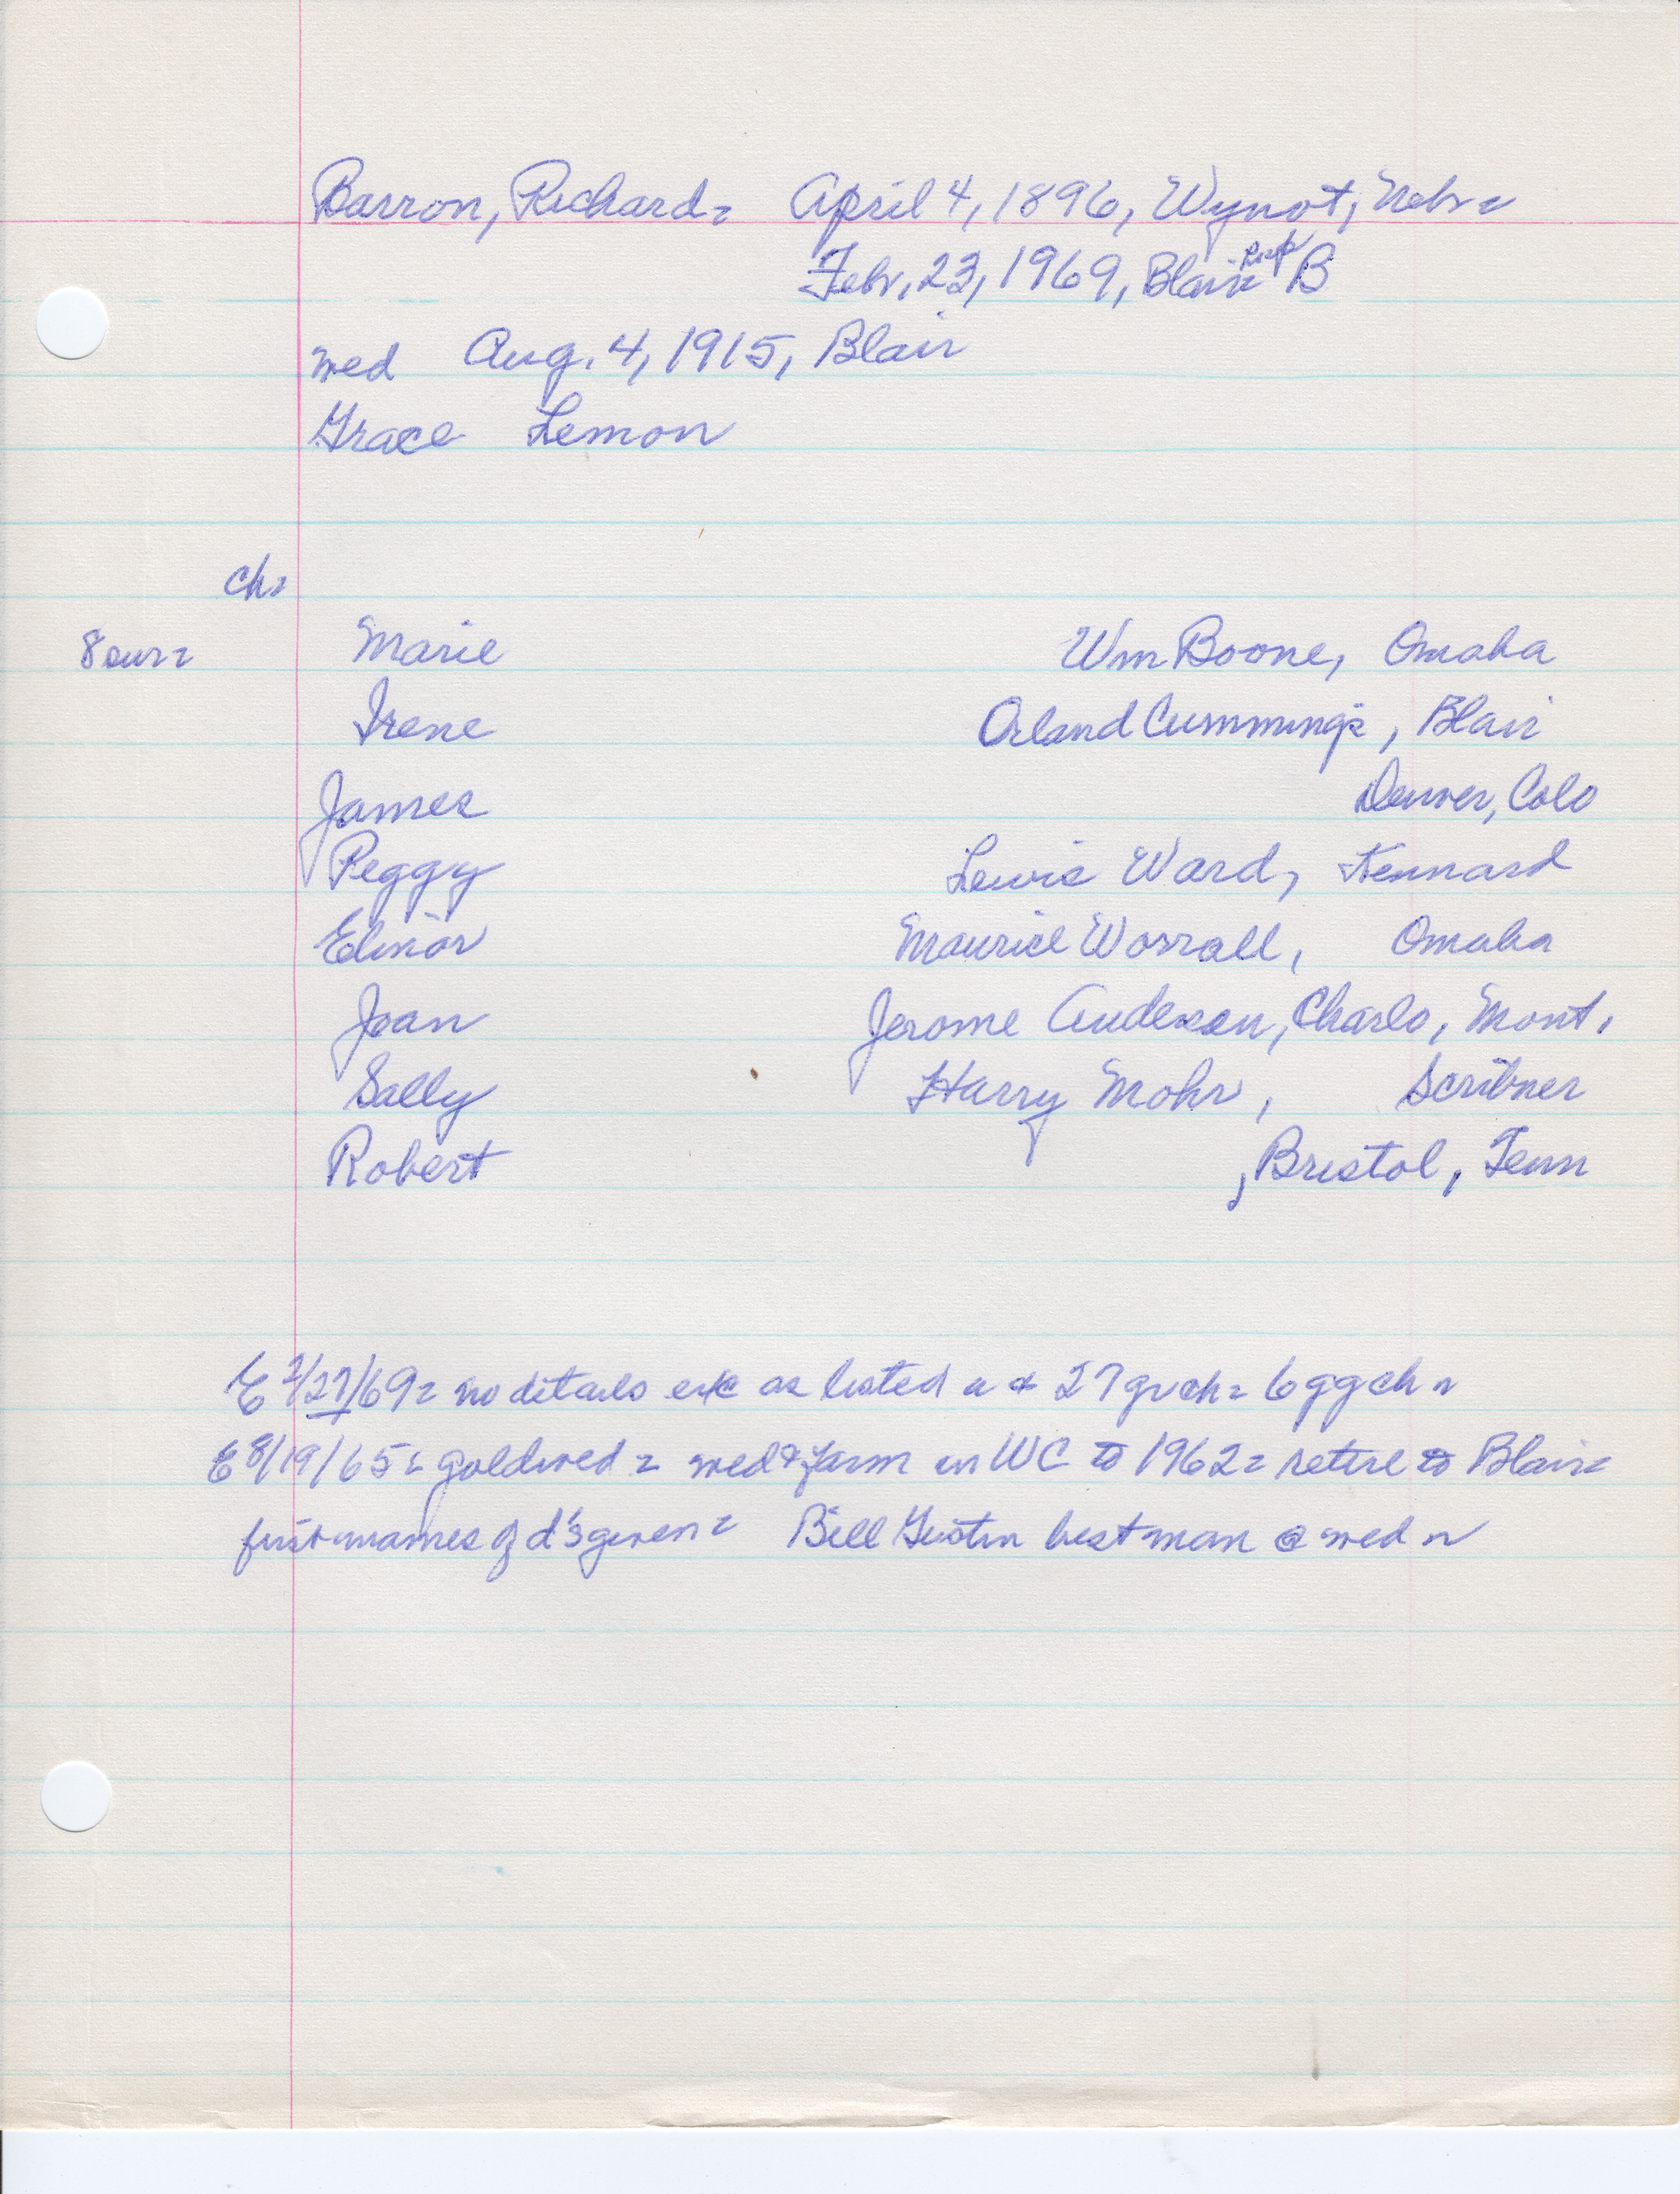 Barron, Richard= April 4, 1896, Wynot, Nebr=
Febr. 23, 1969, Blair= B
wed Aug. 4, 1915, Blair
Grace Lemon
ch=
8 sur= Marie Wm Boone, Omaha
Irene Orland Cummings, Blair
James Denver, Colo
Peggy Lewis Ward, Kennard
Elinor Maurice Worrall, Omaha
Joan Jerome Anderson, Charlo, Mont.
Sally Harry Mohr, Scribner
Robert , Bristol, Tenn
E 2/27/69= no details exc as listed & 27 grch= 6 ggch
E 8/19/65= goldwed= wed & farm in WC to 1962= retire to Blair=
first names of d's given= Bill Gustin best man @ wed